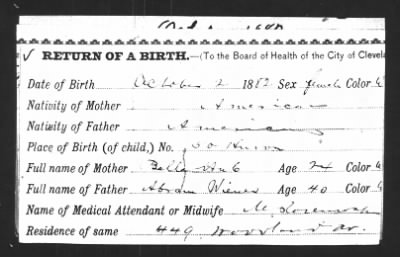 ✓ RETURN OF A BIRTH.—(To the Board of Health of the City of Clevela
Date of Birth October 2 1882 Sex female Color W
Nativity of Mother American
Nativity of Father American
Place of Birth (of child.) No. 50 Huron
Full name of Mother Age 24 Color W
Full name of Father Abram Wiener Age 40 Color W
Name of Medical Attendant or Midwife M.
Residence of same 449 Woodland Av.